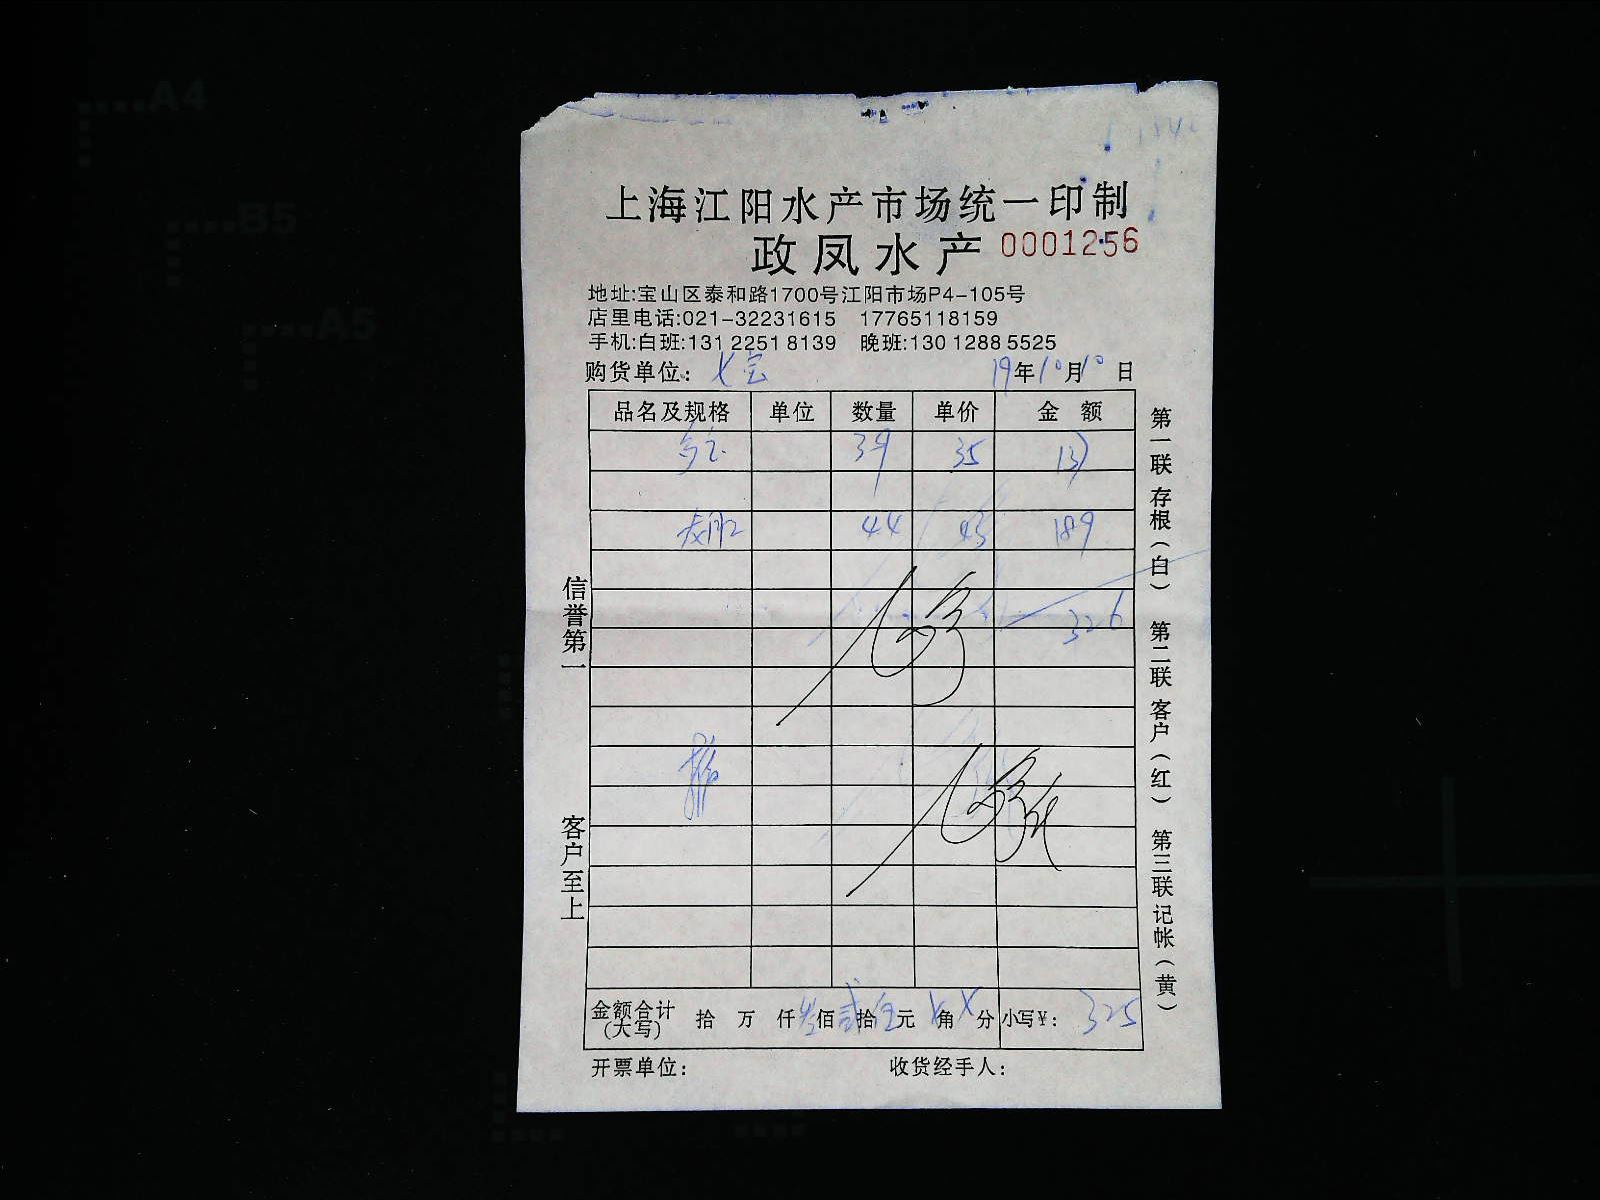 上海江阳水产市场统一印制
政凤水产 0001256
地址:宝山区泰和路1700号江阳市场P4-105号
店里电话:021-32231615 17765118159
手机:白班:131 2251 8139 晚班:130 1288 5525
购货单位: 七宝 19年10月10日
品名及规格 单位 数量 单价 金额
多宝 39 35 137
44 43 189
326
金额合计(大写) 拾 万 仟叁佰贰拾伍元 角 分 小写¥: 325
开票单位: 收货经手人:
信誉第一 客户至上
第一联 存根(白) 第二联 客户(红) 第三联 记帐(黄)